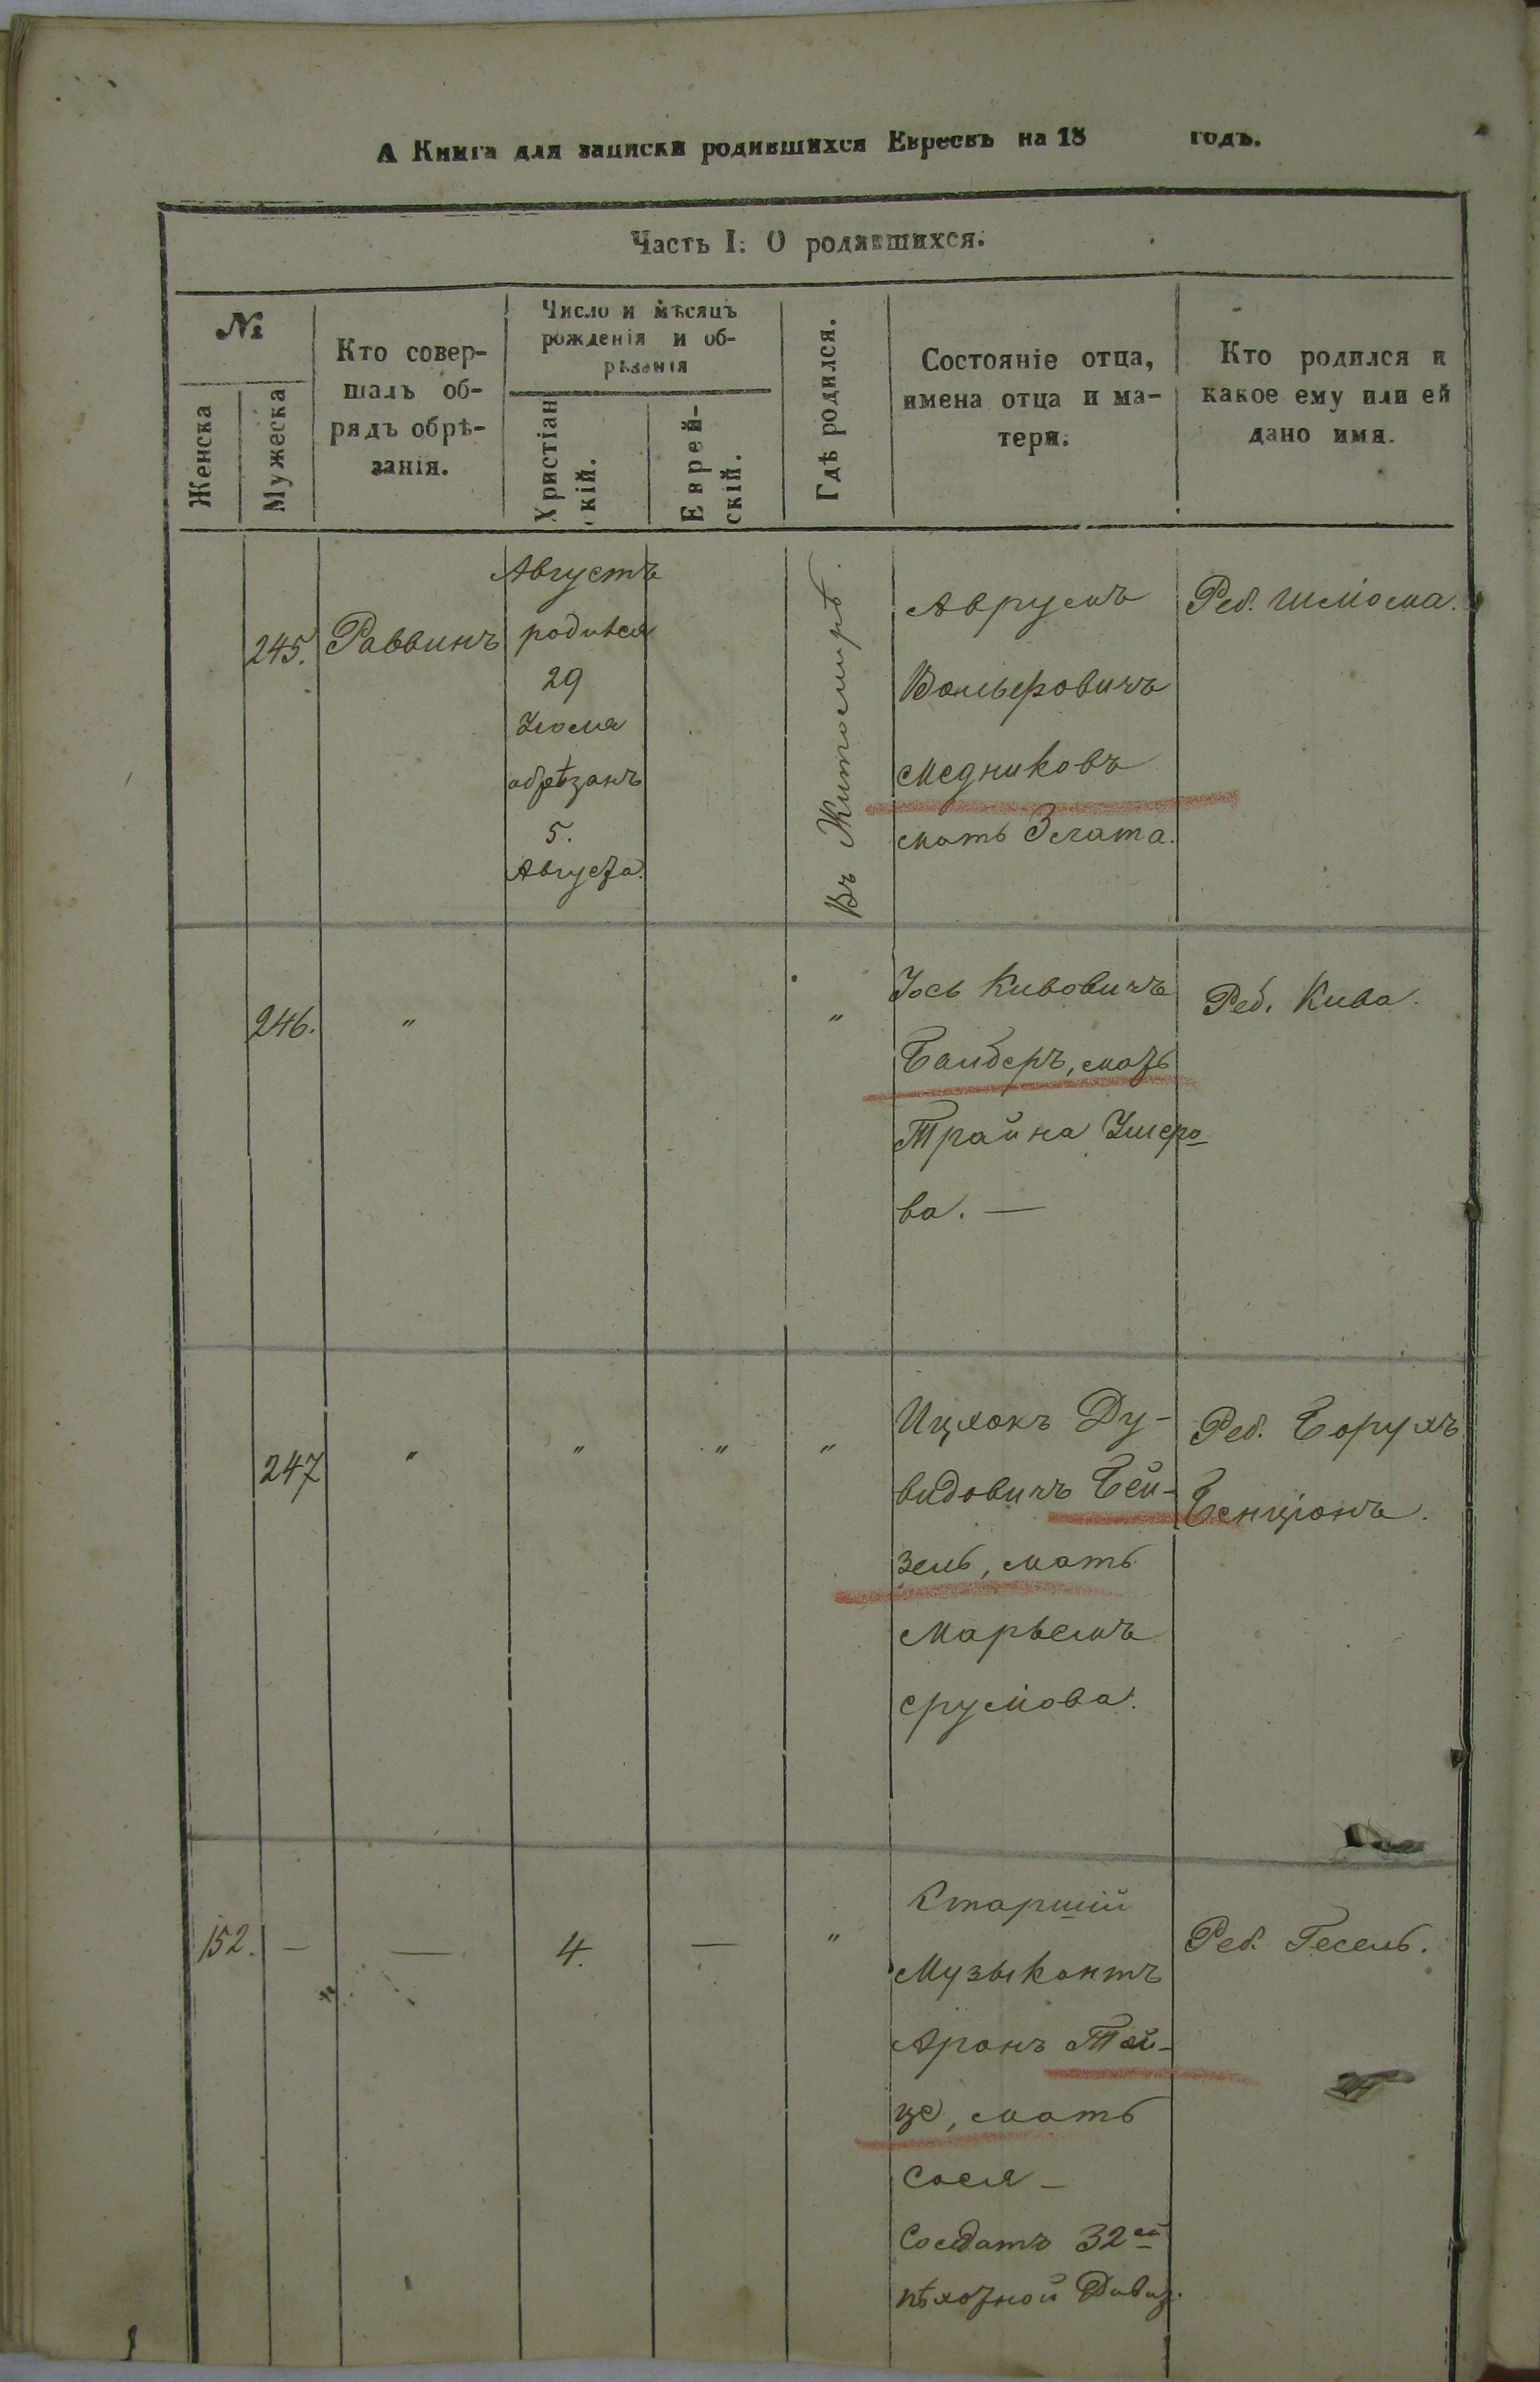 А Книга для записки родившихся Евреевъ на 18 годъ.
Часть I. О родившихся.
№
Женска
Мужеска
Кто совер-
шалъ об-
рядъ обрѣ-
занія.
Число и мѣсяцъ
рожденія и об-
рѣзанія
Христіан
скій.
Еврей-
скій.
Гдѣ родился.
Состояніе отца,
имена отца и ма-
тери.
Кто родился и
какое ему или ей
дано имя.
245.
Раввинъ
Августъ
родился
29
Іюля
обрѣзанъ
5.
Августа.
Въ Житомирѣ.
Аврумъ
Вольфовичъ
Медниковъ
мать Злата.
Реб. Шлома.
246.
"
"
Іось Кивовичъ
Бамберъ, мать
Трайна Ушеро
ва. —
Реб. Кива.
247
"
"
"
"
Ицхокъ Ду-
видовичъ Бей-
зель, мать
Марьемъ
Срулова.
Реб. Борухъ
Бенціонъ.
152.
—
—
4.
—
"
Старшій
Музыкантъ
Аронъ Тей-
це, мать
Сося —
Солдатъ 32ей
пѣхотной Дивиз.
Реб. Гесель.